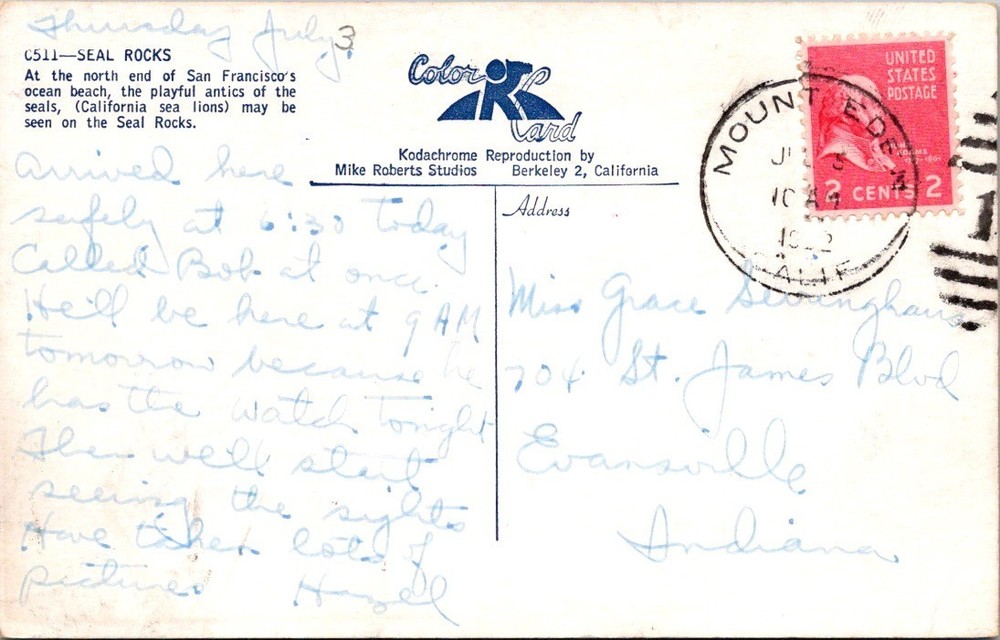 Thursday July 3
C511—SEAL ROCKS
At the north end of San Francisco's
ocean beach, the playful antics of the
seals, (California sea lions) may be
seen on the Seal Rocks.
Color Card
Kodachrome Reproduction by
Mike Roberts Studios Berkeley 2, California
UNITED
STATES
POSTAGE
2 CENTS 2
MOUNT EDEN
10 AM
CALIF
Arrived here
safely at 6:30 today
Called Bob at once.
He'll be here at 9 AM
tomorrow because he
has the watch tonight
Then we'll start
seeing the sights
Have taken lots of
pictures Hazel
Address
Miss Grace Severinghaus
704 St. James Blvd
Evansville
Indiana